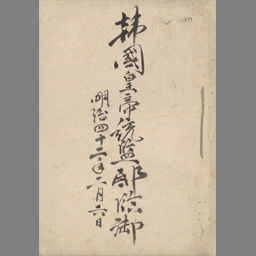 韓國皇帝統監邸臨御
明治四十二年二月六日